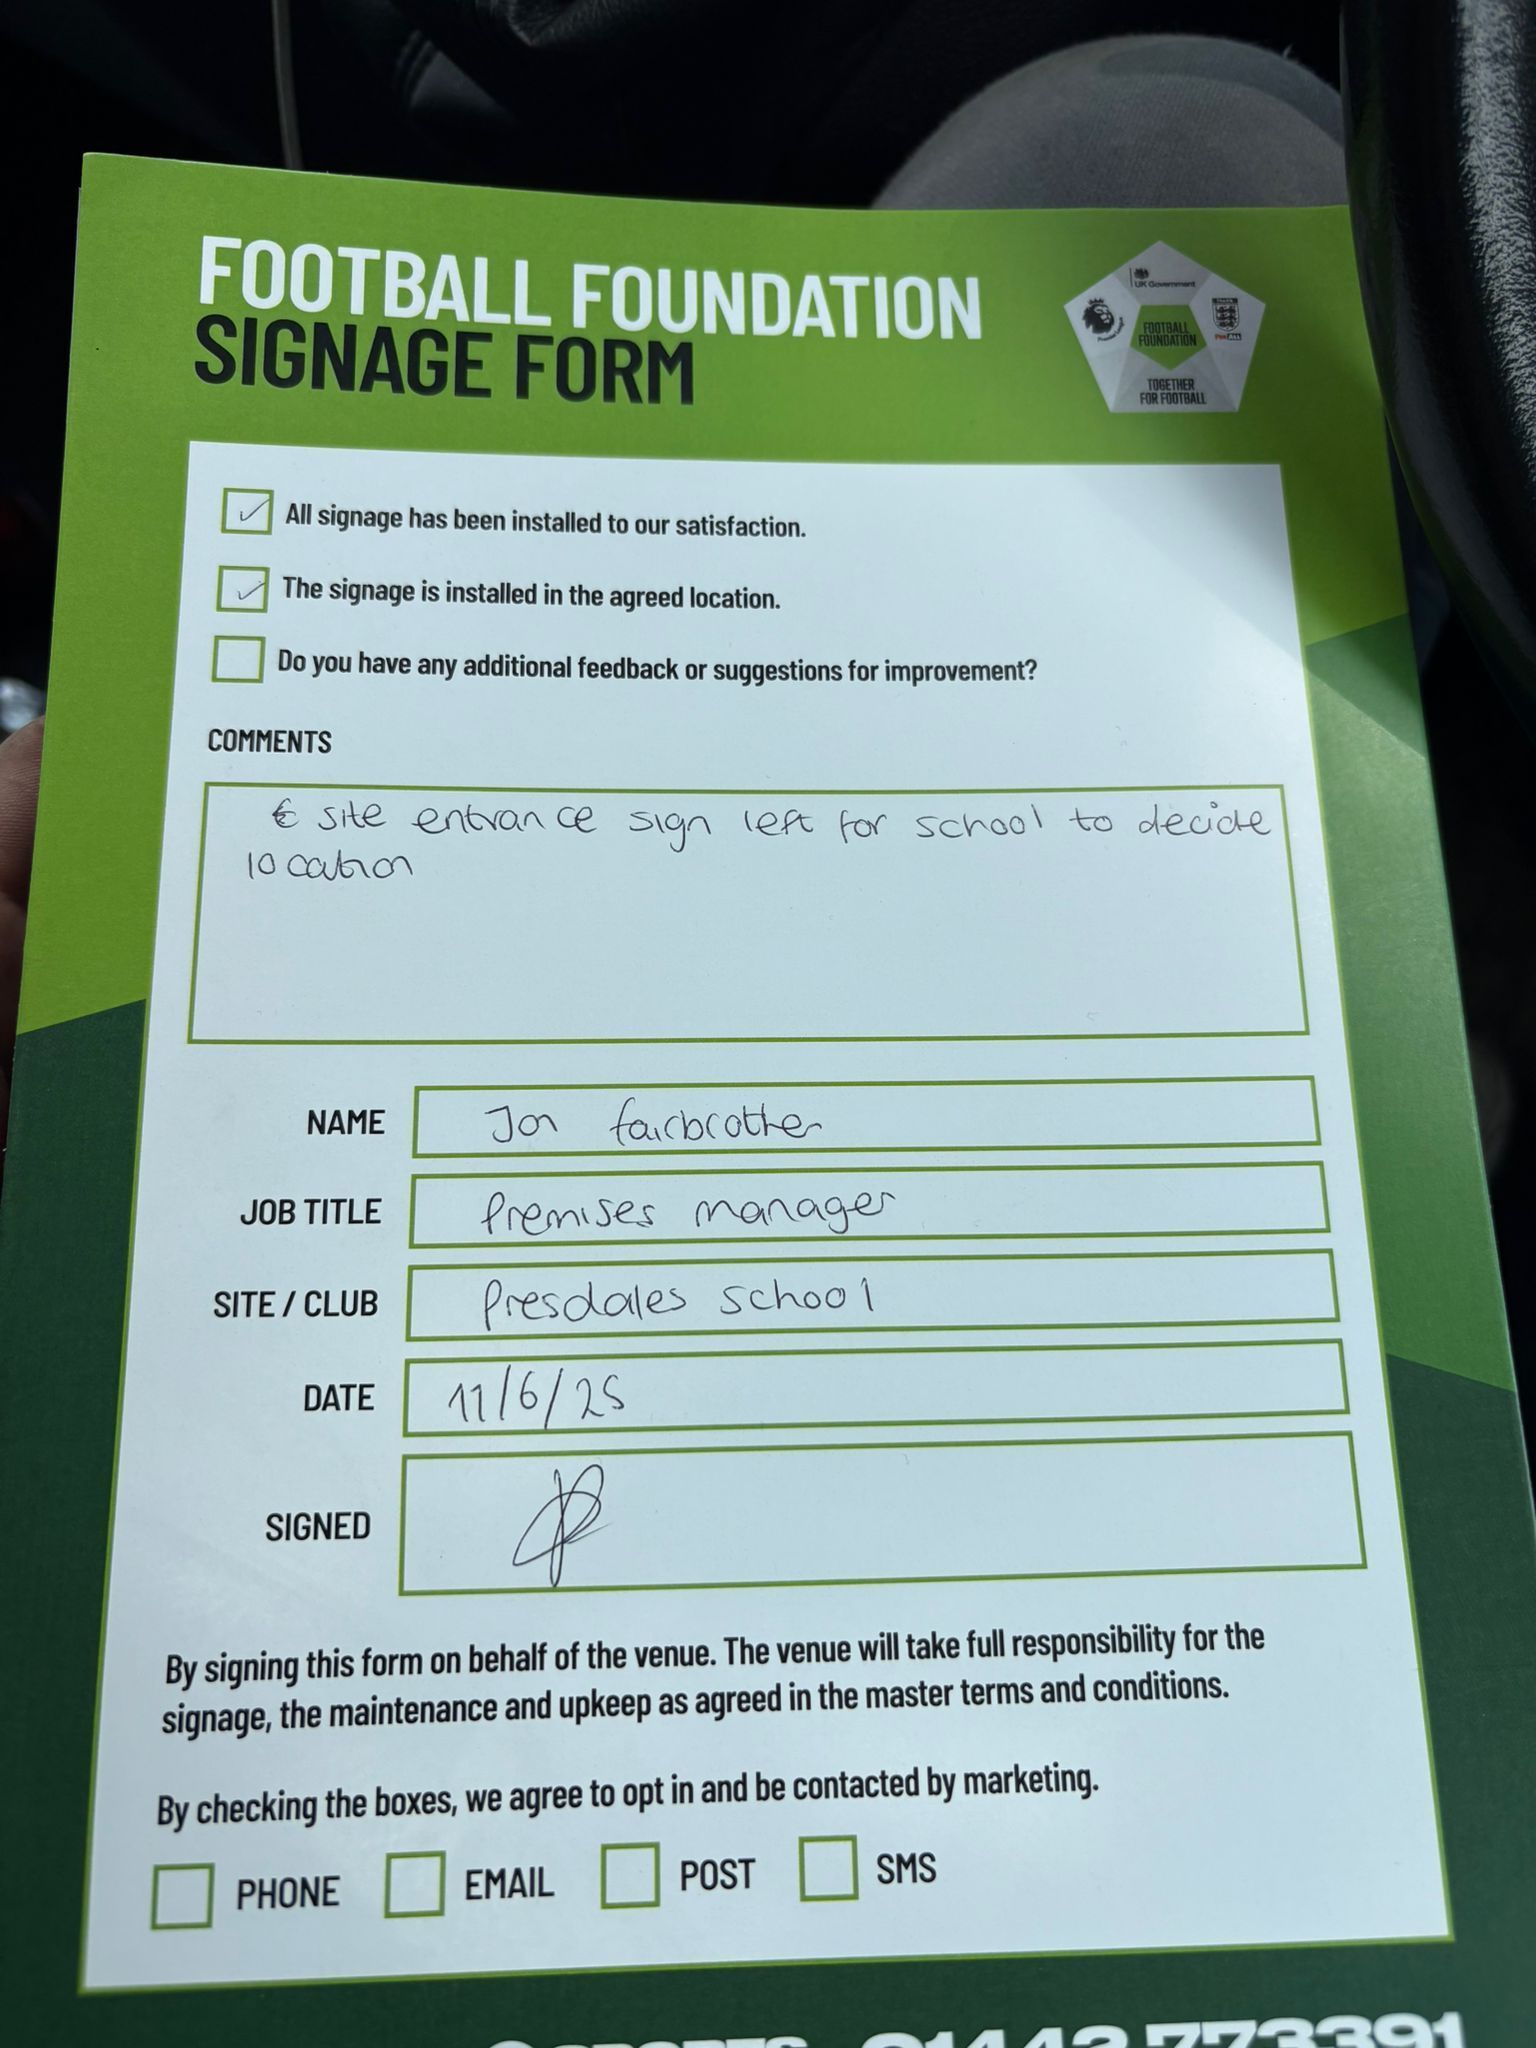 FOOTBALL FOUNDATION
SIGNAGE FORM
UK Government
Premier League
FOOTBALL
FOUNDATION
TOGETHER
FOR FOOTBALL
All signage has been installed to our satisfaction.
The signage is installed in the agreed location.
Do you have any additional feedback or suggestions for improvement?
COMMENTS
site entrance sign left for school to decide
location
NAME Jon fairbrother
JOB TITLE Premises manager
SITE / CLUB Presdales school
DATE 11/6/25
SIGNED
By signing this form on behalf of the venue. The venue will take full responsibility for the
signage, the maintenance and upkeep as agreed in the master terms and conditions.
By checking the boxes, we agree to opt in and be contacted by marketing.
PHONE EMAIL POST SMS
01442 773391